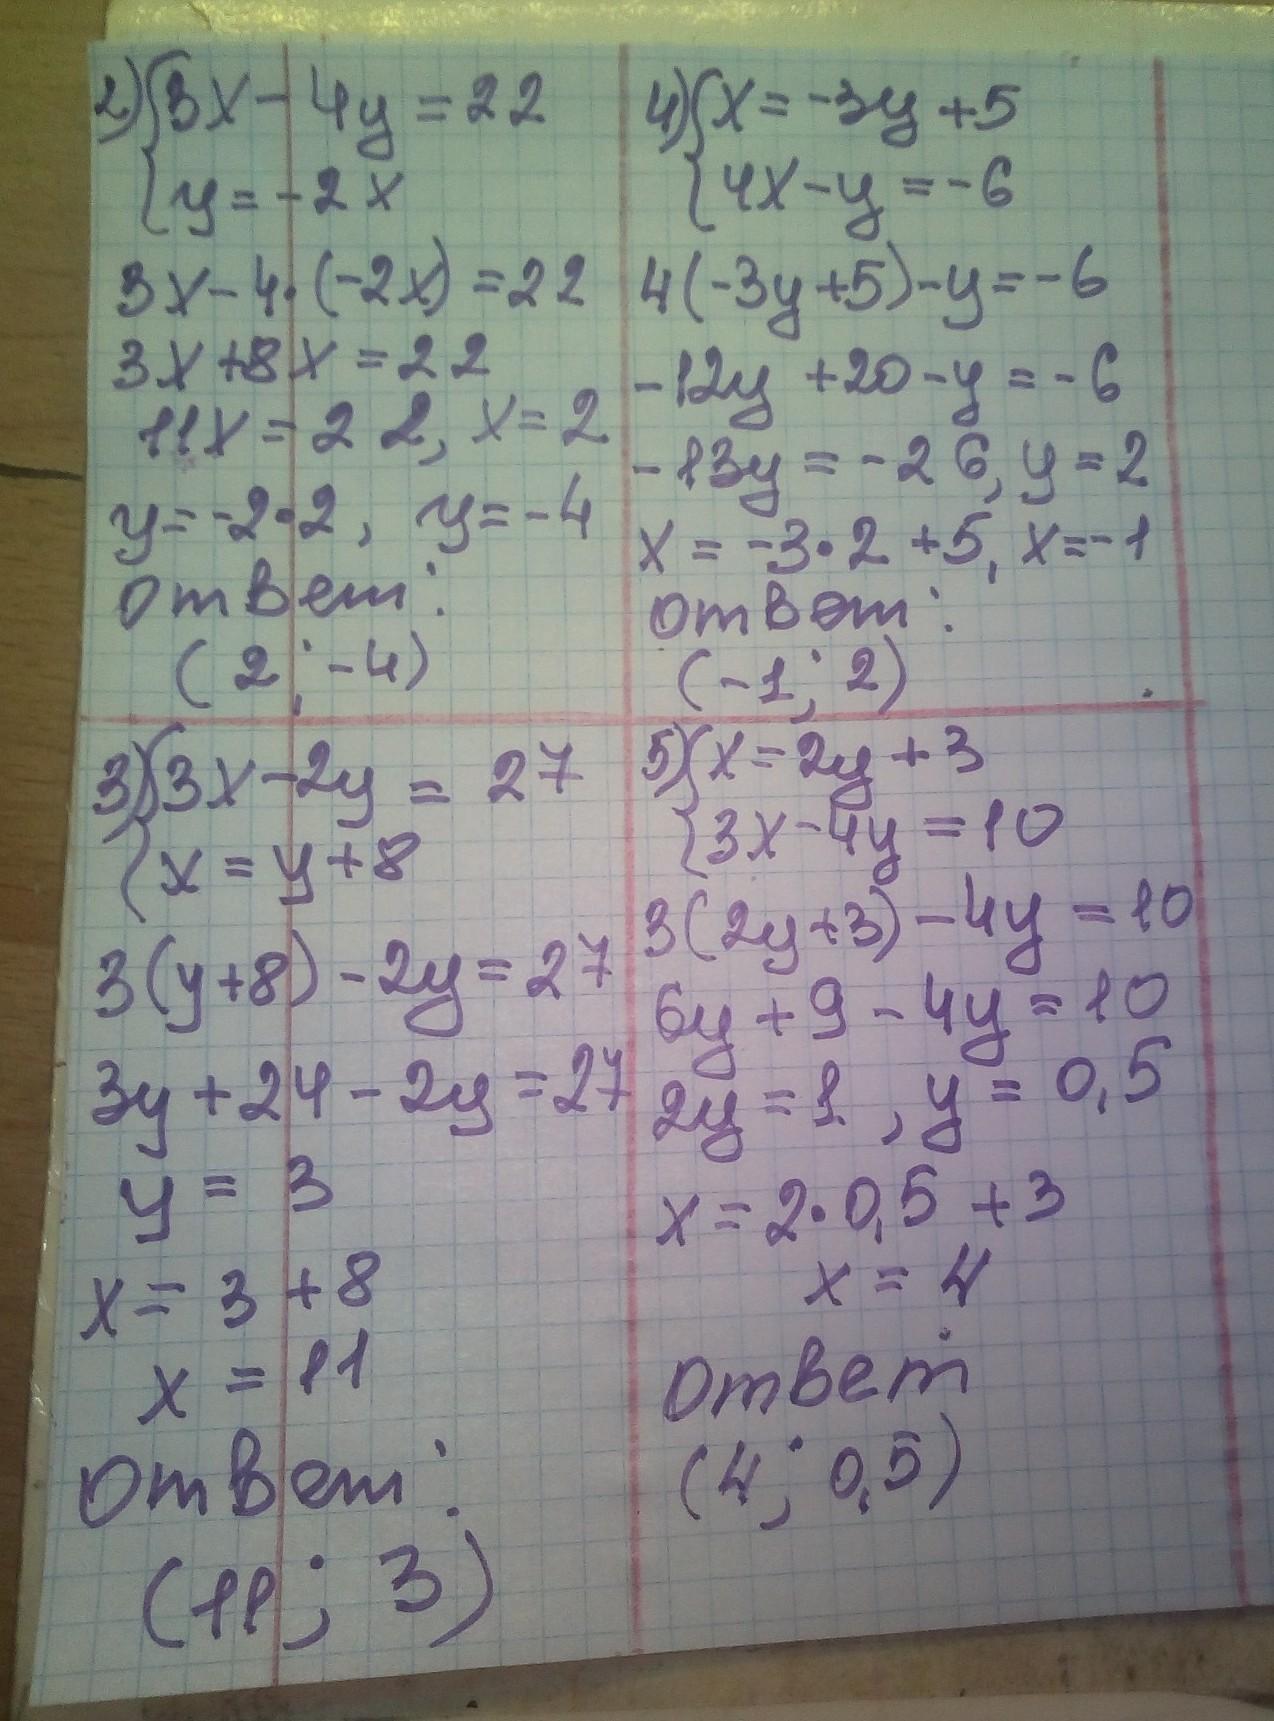 2) { 3x - 4y = 22
{ y = -2x
3x - 4·(-2x) = 22
3x + 8x = 22
11x = 22, x = 2
y = -2·2, y = -4
Ответ:
(2; -4)
3) { 3x - 2y = 27
{ x = y + 8
3(y+8) - 2y = 27
3y + 24 - 2y = 27
y = 3
x = 3 + 8
x = 11
Ответ:
(11; 3)
4) { x = -3y + 5
{ 4x - y = -6
4(-3y+5) - y = -6
-12y + 20 - y = -6
-13y = -26, y = 2
x = -3·2 + 5, x = -1
Ответ:
(-1; 2)
5) { x = 2y + 3
{ 3x - 4y = 10
3(2y+3) - 4y = 10
6y + 9 - 4y = 10
2y = 1, y = 0,5
x = 2·0,5 + 3
x = 4
Ответ
(4; 0,5)